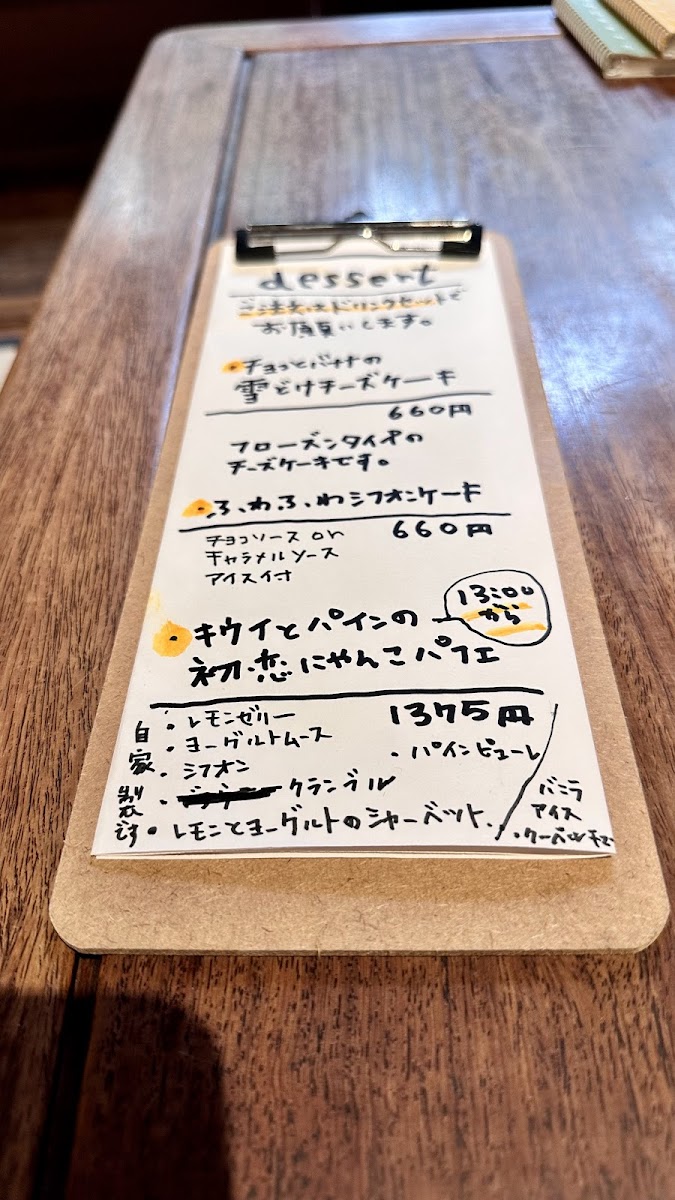 dessert
ご注文はドリンクセットで
お願いします。
・チョコとバナナの
雪どけチーズケーキ
660円
フローズンタイプの
チーズケーキです。
・ふわふわシフォンケーキ
チョコソース or
660円
キャラメルソース
アイス付
13:00
から
・キウイとパインの
初恋にゃんこパフェ
1375円
自家製です
・レモンゼリー
・ヨーグルトムース
・シフォン
・クランブル
・レモンとヨーグルトのシャーベット
・パインピューレ
バニラ
アイス